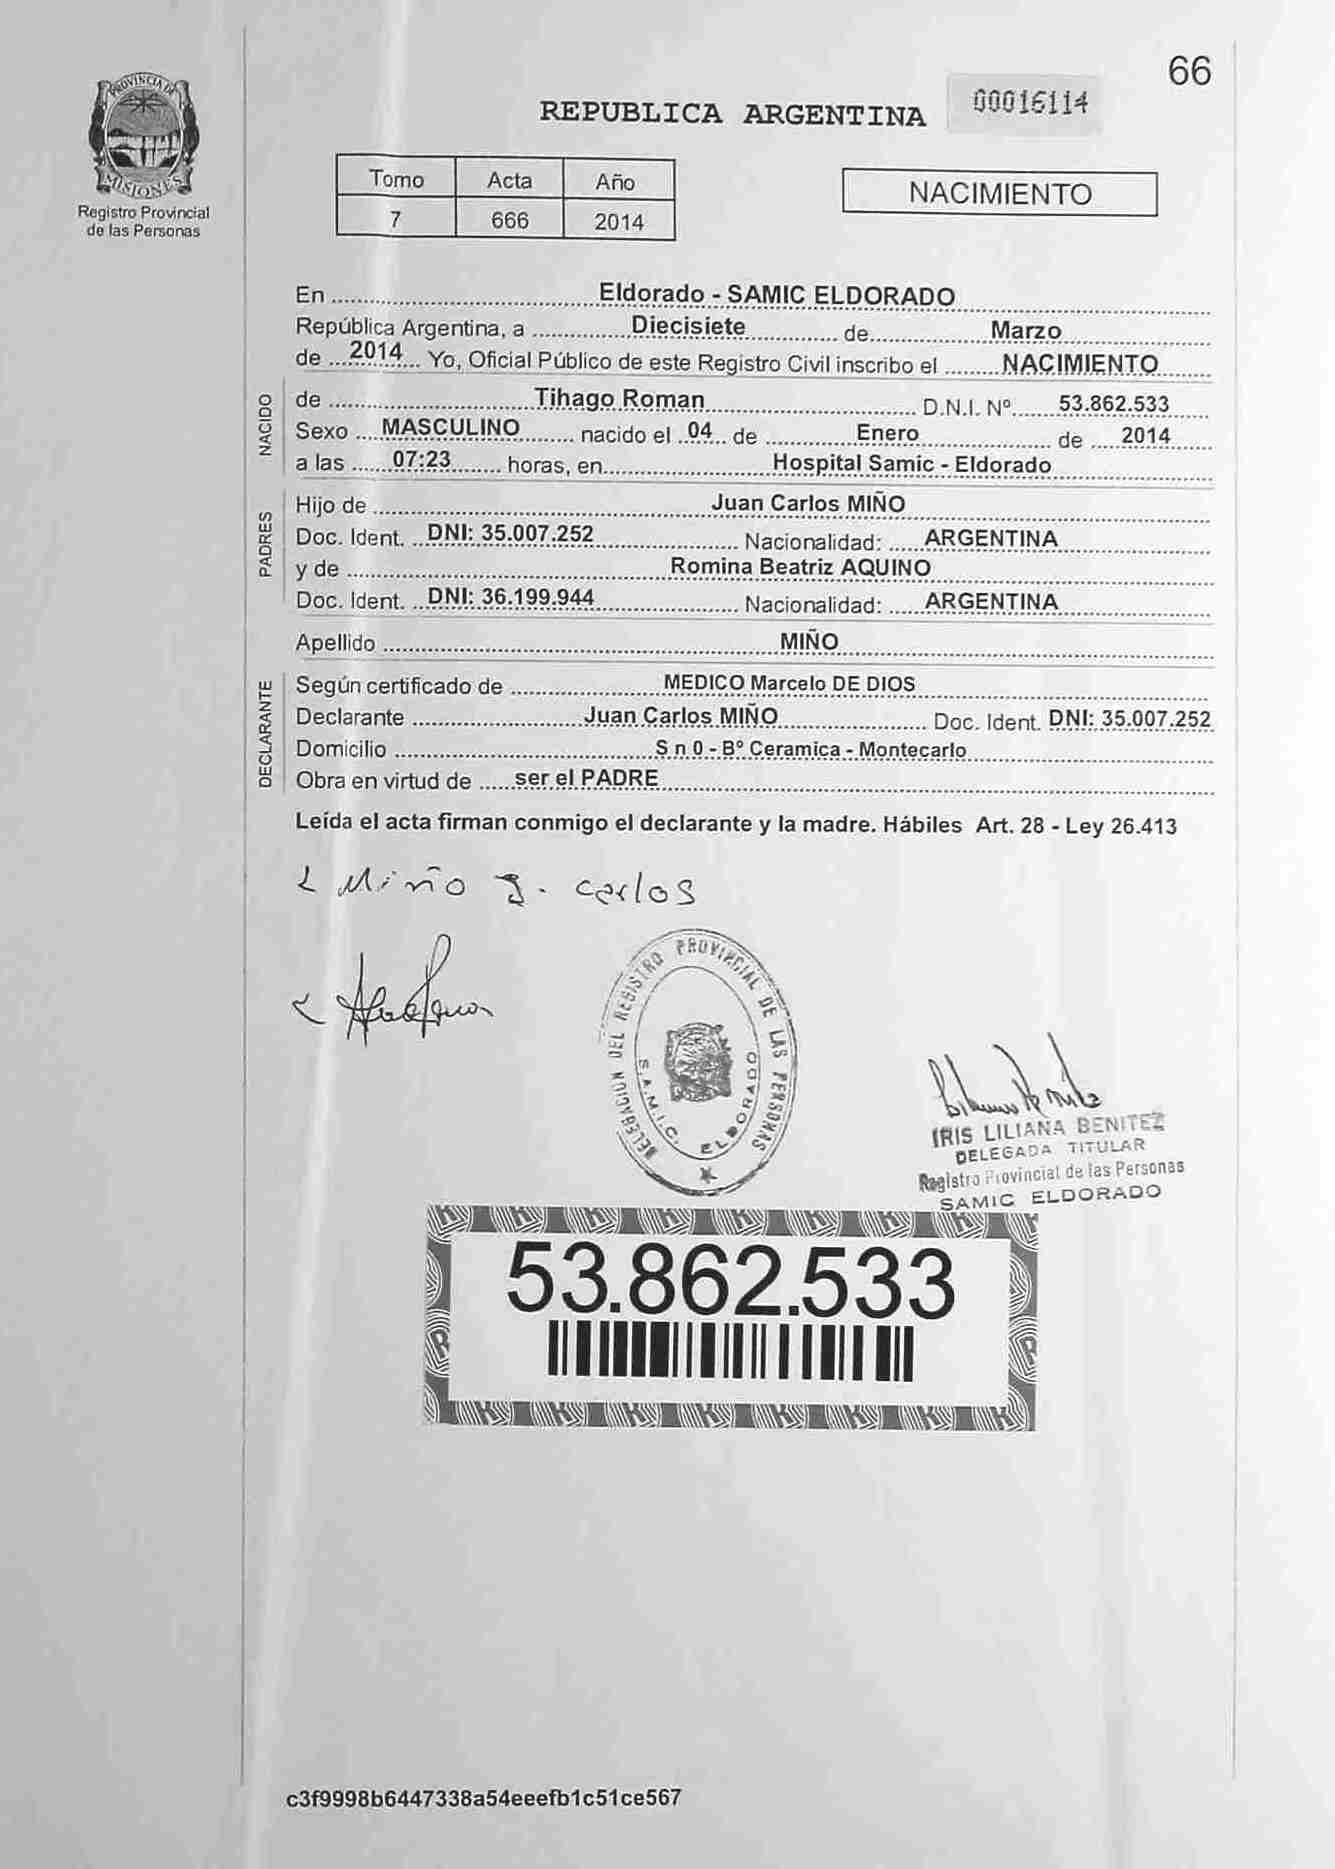 66
PROVINCIA DE
MISIONES
Registro Provincial
de las Personas
REPUBLICA ARGENTINA
00016114
Tomo Acta Año
7 666 2014
NACIMIENTO
En Eldorado - SAMIC ELDORADO
República Argentina, a Diecisiete de Marzo
de 2014 Yo, Oficial Público de este Registro Civil inscribo el NACIMIENTO
NACIDO
de Tihago Roman D.N.I. Nº 53.862.533
Sexo MASCULINO nacido el 04 de Enero de 2014
a las 07:23 horas, en Hospital Samic - Eldorado
PADRES
Hijo de Juan Carlos MIÑO
Doc. Ident. DNI: 35.007.252 Nacionalidad: ARGENTINA
y de Romina Beatriz AQUINO
Doc. Ident. DNI: 36.199.944 Nacionalidad: ARGENTINA
Apellido MIÑO
DECLARANTE
Según certificado de MEDICO Marcelo DE DIOS
Declarante Juan Carlos MIÑO Doc. Ident. DNI: 35.007.252
Domicilio S n 0 - Bº Ceramica - Montecarlo
Obra en virtud de ser el PADRE
Leída el acta firman conmigo el declarante y la madre. Hábiles Art. 28 - Ley 26.413
Miño J. Carlos
DELEGACION DEL REGISTRO PROVINCIAL DE LAS PERSONAS
S.A.M.I.C. ELDORADO
IRIS LILIANA BENITEZ
DELEGADA TITULAR
Registro Provincial de las Personas
SAMIC ELDORADO
53.862.533
c3f9998b6447338a54eeefb1c51ce567